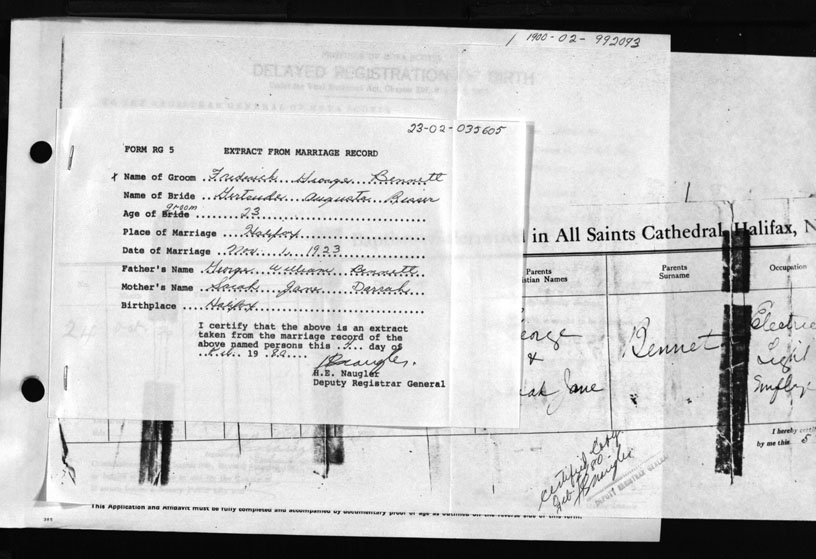 1900-02-992093
PROVINCE OF NOVA SCOTIA
DELAYED REGISTRATION OF BIRTH
23-02-035605
FORM RG 5 EXTRACT FROM MARRIAGE RECORD
x Name of Groom Frederick George Bennett
Name of Bride Gertrude Augusta
groom
Age of Bride 23
Place of Marriage Halifax
Date of Marriage Nov. 1, 1923
Father's Name George William Bennett
Mother's Name Sarah Jane Darrah
Birthplace Halifax
I certify that the above is an extract
taken from the marriage record of the
above named persons this day of
19 80
H.E. Naugler
Deputy Registrar General
in All Saints Cathedral, Halifax, N
Parents
stian Names
Parents
Surname
Occupation
eorge
&
ah Jane
Bennet
Electric
Light
Employe
I hereby certi
by me this 5
Certified Copy
Feb 80
HENaugler
DEPUTY REGISTRAR GENERAL
This Application and Affidavit must be fully completed and accompanied by documentary proof of age as outlined on the reverse side of this form.